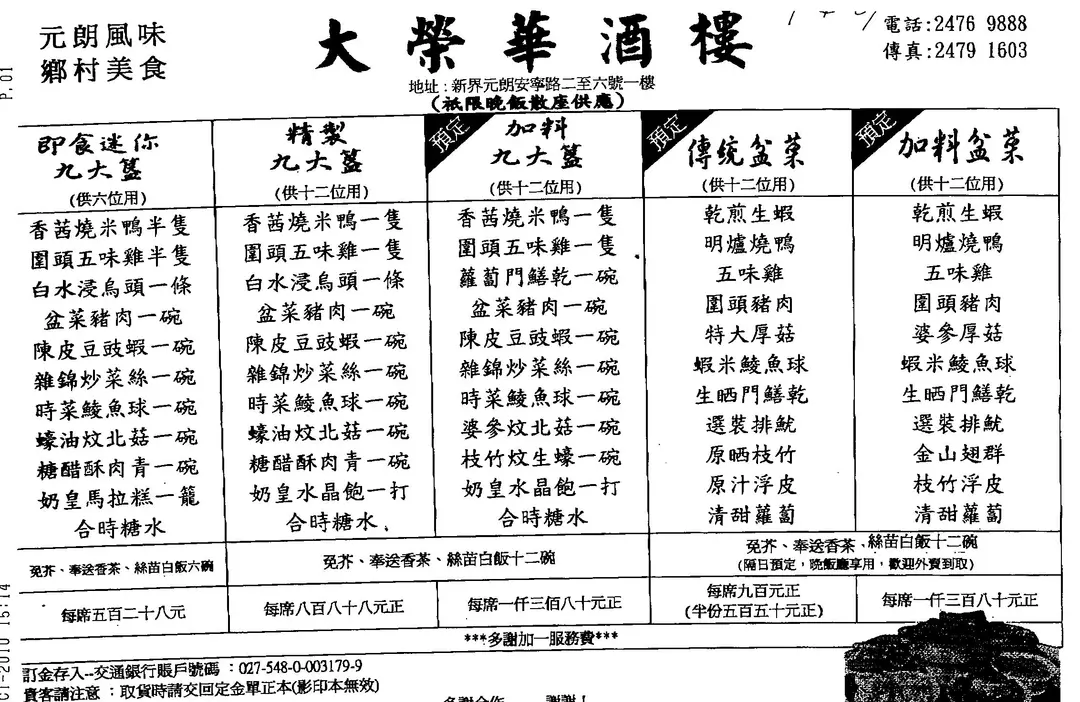 元朗風味
鄉村美食
大榮華酒樓
電話:2476 9888
傳真:2479 1603
地址:新界元朗安寧路二至六號一樓
(祇限晚飯散座供應)
P.01
即食迷你
九大簋
(供六位用)
香茜燒米鴨半隻
圍頭五味雞半隻
白水浸烏頭一條
盆菜豬肉一碗
陳皮豆豉蝦一碗
雜錦炒菜絲一碗
時菜鯪魚球一碗
蠔油炆北菇一碗
糖醋酥肉青一碗
奶皇馬拉糕一籠
合時糖水
免芥、奉送香茶、絲苗白飯六碗
每席五百二十八元
精製
九大簋
(供十二位用)
香茜燒米鴨一隻
圍頭五味雞一隻
白水浸烏頭一條
盆菜豬肉一碗
陳皮豆豉蝦一碗
雜錦炒菜絲一碗
時菜鯪魚球一碗
蠔油炆北菇一碗
糖醋酥肉青一碗
奶皇水晶飽一打
合時糖水
每席八百八十八元正
預定
加料
九大簋
(供十二位用)
香茜燒米鴨一隻
圍頭五味雞一隻
蘿蔔門鱔乾一碗
盆菜豬肉一碗
陳皮豆豉蝦一碗
雜錦炒菜絲一碗
時菜鯪魚球一碗
婆參炆北菇一碗
枝竹炆生蠔一碗
奶皇水晶飽一打
合時糖水
免芥、奉送香茶、絲苗白飯十二碗
每席一仟三佰八十元正
預定
傳統盆菜
(供十二位用)
乾煎生蝦
明爐燒鴨
五味雞
圍頭豬肉
特大厚菇
蝦米鯪魚球
生晒門鱔乾
選裝排魷
原晒枝竹
原汁浮皮
清甜蘿蔔
每席九百元正
(半份五百五十元正)
預定
加料盆菜
(供十二位用)
乾煎生蝦
明爐燒鴨
五味雞
圍頭豬肉
婆參厚菇
蝦米鯪魚球
生晒門鱔乾
選裝排魷
金山翅群
枝竹浮皮
清甜蘿蔔
免芥、奉送香茶、絲苗白飯十二碗
(隔日預定,晚飯廳享用,歡迎外賣到取)
每席一仟三百八十元正
***多謝加一服務費***
訂金存入--交通銀行賬戶號碼:027-548-0-003179-9
貴客請注意:取貨時請交回定金單正本(影印本無效)
多謝合作 謝謝!
-2010 15:14